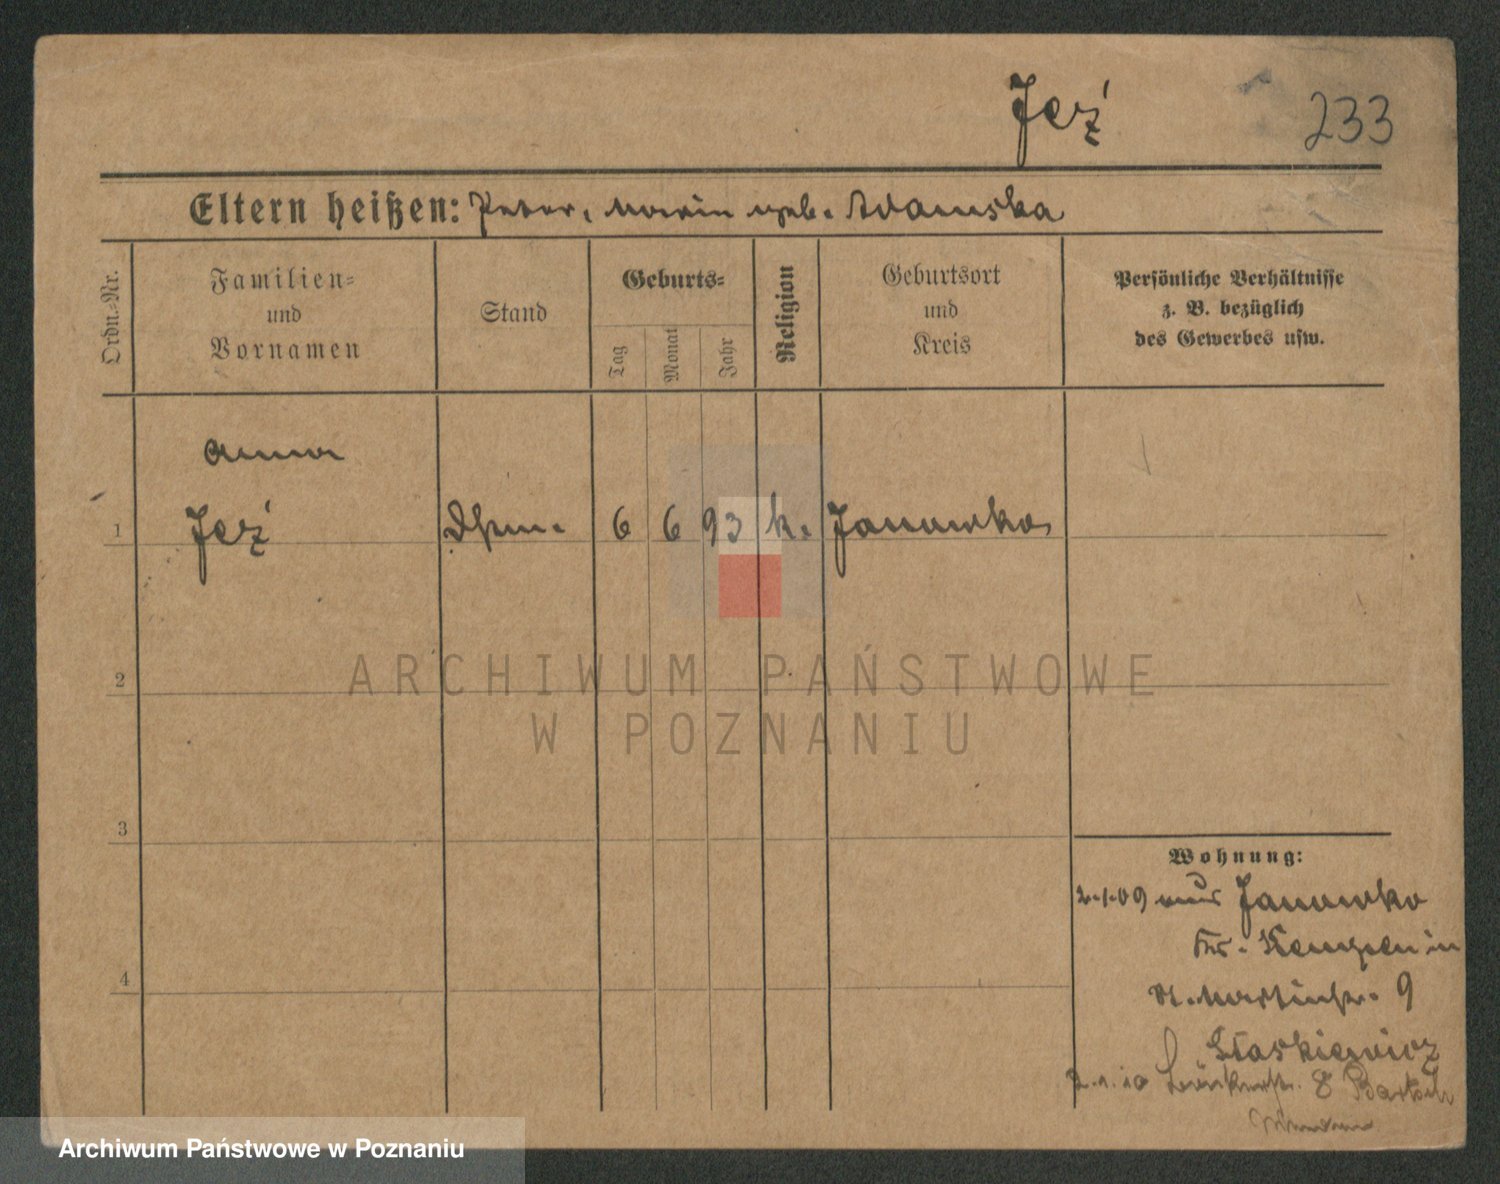 Jeż
233
Eltern heißen: Peter, Maria geb. Adamska
Ordn.-Nr.
Familien-
und
Vornamen
Stand
Geburts-
Tag
Monat
Jahr
Religion
Geburtsort
und
Kreis
Persönliche Verhältnisse
z. B. bezüglich
des Gewerbes usw.
Anna
1 Jeż 6 6 93 k. Janowko
2
3
4
ARCHIWUM PAŃSTWOWE
W POZNANIU
Wohnung:
2.1.09 aus Janowko
Kr. Kempen in
St. Martinstr. 9
Staskiewicz
2.1.10 8 Bartsch
Archiwum Państwowe w Poznaniu